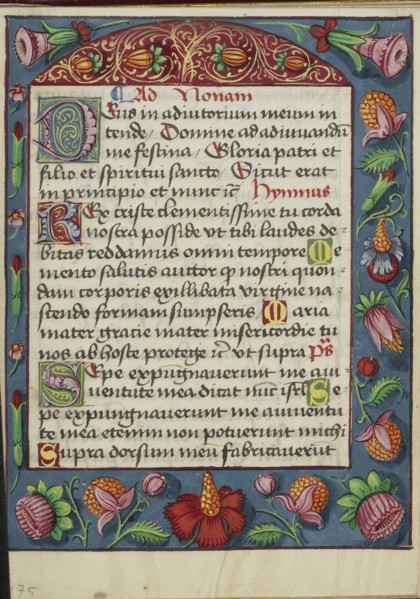 Ad Nonam
Deus in adiutorium meum in
tende / Domine ad adiuvandū
me festina / Gloria patri et
filio et spiritui sancto / Sicut erat
in principio et nunc ic̄ Hymnus
Rex criste clementissime tu corda
nostra posside vt tibi laudes de-
bitas reddamus omni tempore Me-
mento salutis auctor qp nostri quon-
dam corporis ex illibata virgine na-
scendo formam sumpseris Maria
mater gracie mater misericordie tu
nos ab hoste protege ic̄ vt supra Ps̄
Sepe expugnaverunt me a iu-
ventute mea dicat nūc isrl Se-
pe expungnaverunt me a iuventu
te mea etenim non potuerunt michi
Supra dorsum meū fabricaverūt
175